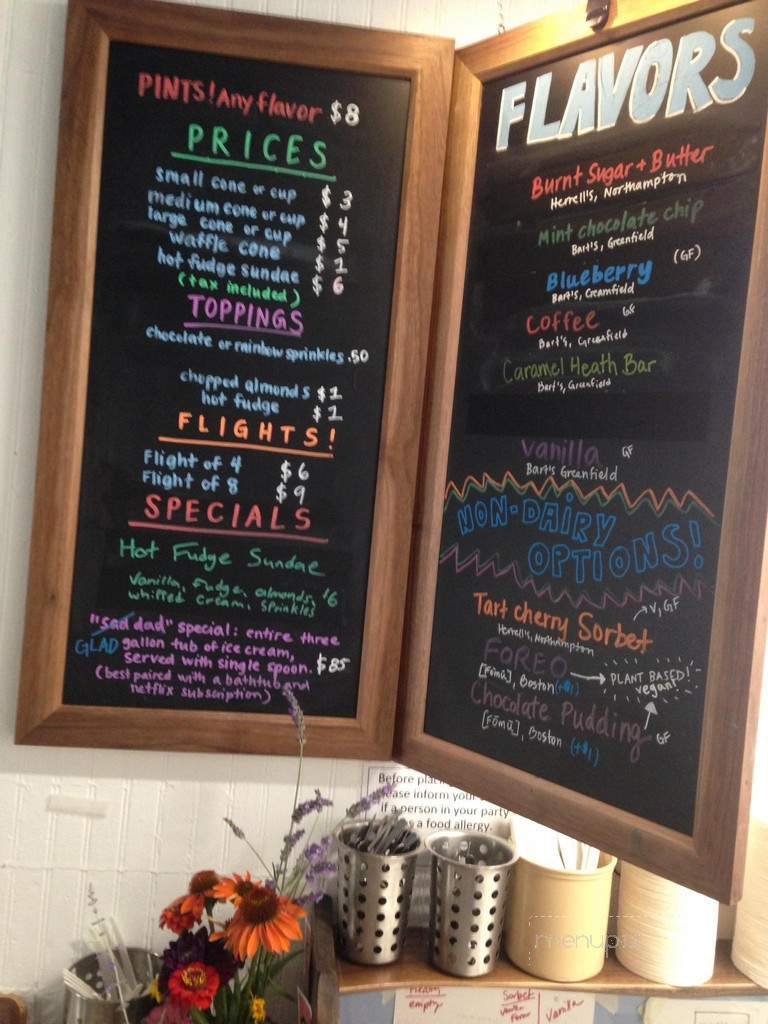 PINTS! Any flavor $8
PRICES
small cone or cup $3
medium cone or cup $4
large cone or cup $5
waffle cone $1
hot fudge sundae $6
(tax included)
TOPPINGS
chocolate or rainbow sprinkles .50
chopped almonds $1
hot fudge $1
FLIGHTS!
Flight of 4 $6
Flight of 8 $9
SPECIALS
Hot Fudge Sundae
Vanilla, fudge, almonds, $6
whipped cream, sprinkles
"sad dad" special: entire three
GLAD gallon tub of ice cream,
served with single spoon. $85
(best paired with a bathtub and
netflix subscription)
FLAVORS
Burnt Sugar + Butter
Herrell's, Northampton
Mint chocolate chip
Bart's, Greenfield
Blueberry (GF)
Bart's, Greenfield
Coffee GF
Bart's, Greenfield
Caramel Heath Bar
Bart's, Greenfield
Vanilla GF
Bart's Greenfield
NON-DAIRY
OPTIONS!
Tart cherry Sorbet → V, GF
Herrell's, Northampton
FOREO
[Fōmū], Boston (+$1) → PLANT BASED!
vegan
Chocolate Pudding GF
[Fōmū], Boston (+$1)
Before
please inform your
if a person in your party
has a food allergy.
empty
Sorbet
Vanilla
menupix